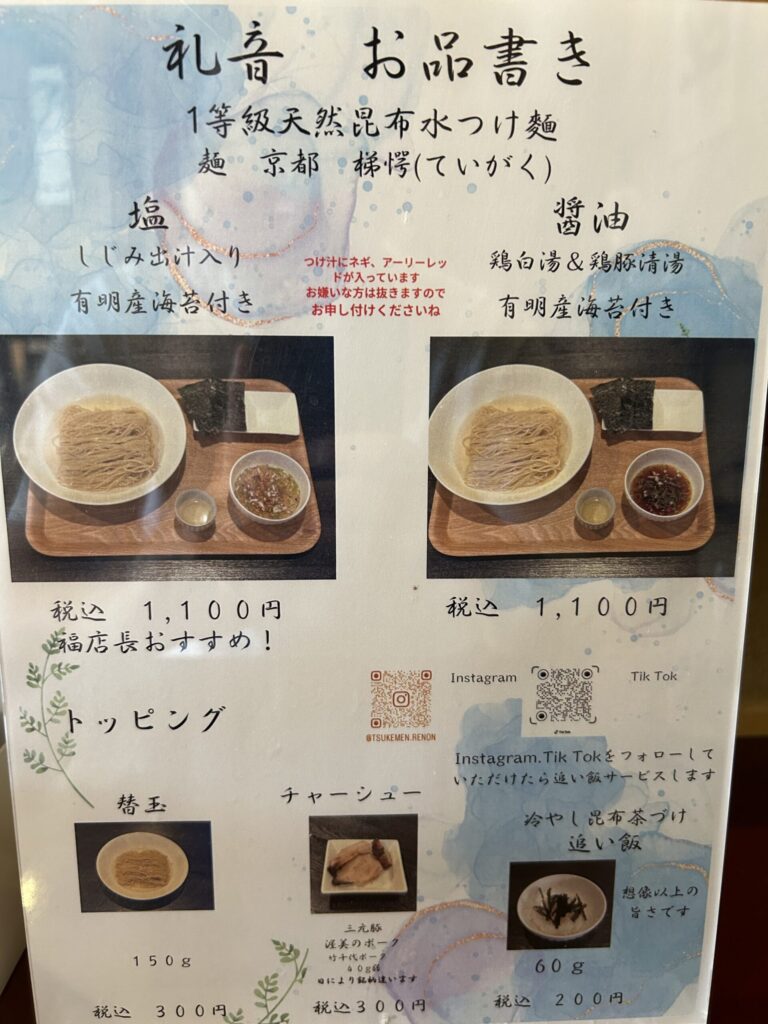 礼音　お品書き
1等級天然昆布水つけ麵
麵　京都　梯愕(ていがく)
塩
しじみ出汁入り
有明産海苔付き
つけ汁にネギ、アーリーレッ
ドが入っています
お嫌いな方は抜きますので
お申し付けくださいね
醤油
鶏白湯&鶏豚清湯
有明産海苔付き
税込　1,100円
福店長おすすめ!
税込　1,100円
@TSUKEMEN.RENON
Instagram
Tik Tok
Instagram.Tik Tokをフォローして
いただけたら追い飯サービスします
トッピング
替玉
150g
税込　300円
チャーシュー
三元豚
渥美のポーク
竹千代ポーク
日により銘柄違います
税込300円
冷やし昆布茶づけ
追い飯
想像以上の
旨さです
60g
税込　200円